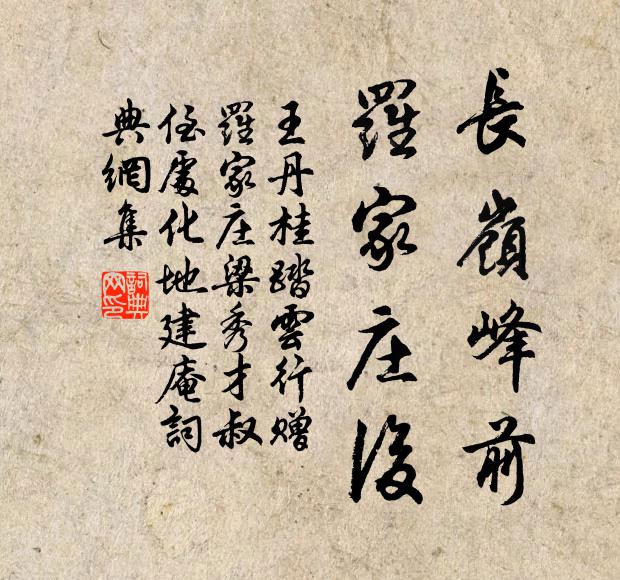 長嶺峰前
羅家庄後
王丹桂踏雲行赠
羅家庄梁秀才叔
侄處化地建庵詞
典網集
詞典
网印